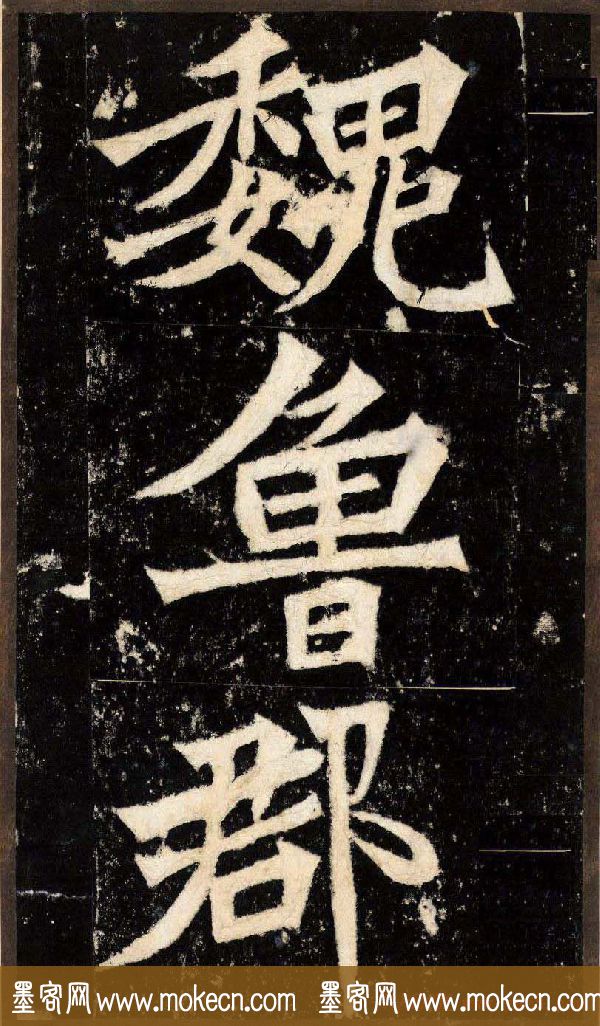 魏
魯
郡
墨客网 www.mokecn.com 墨客网 www.mokecn.com